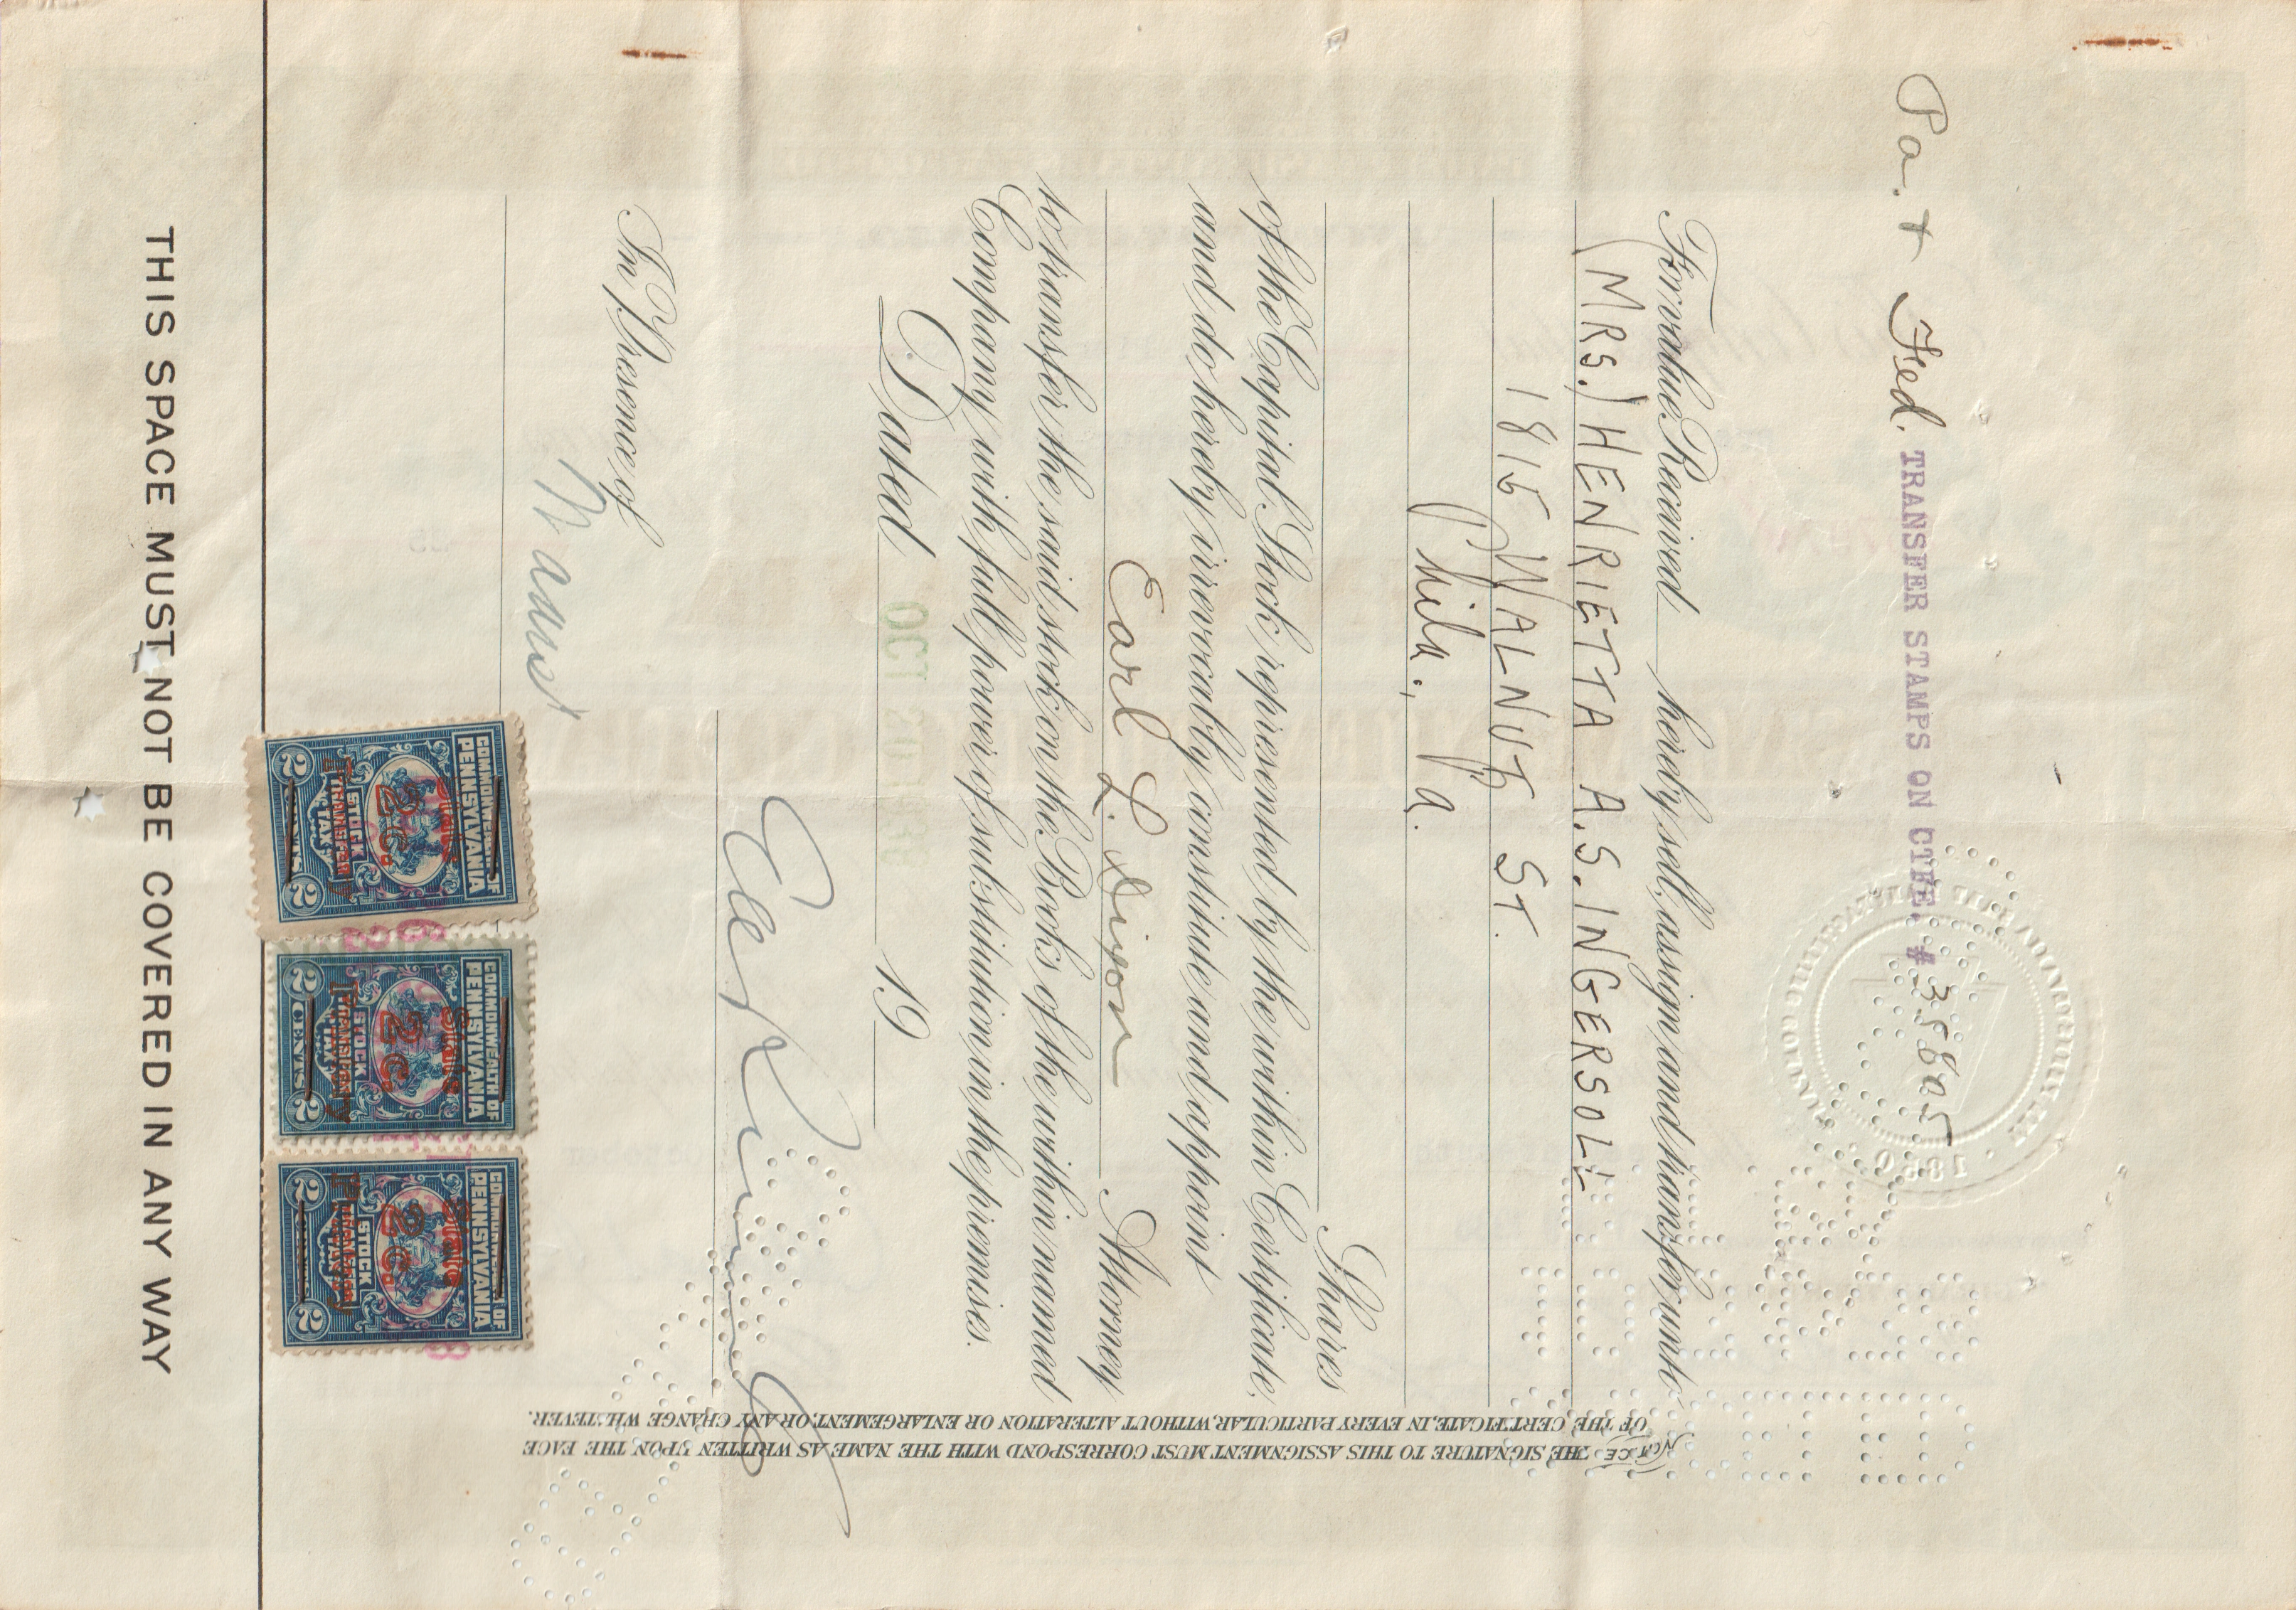 Pa. + Fed. TRANSFER STAMPS ON CTFE. # 35805
For value Received hereby sell, assign and transfer unto
(MRS.) HENRIETTA A. S. INGERSOLL
1815 WALNUT ST.
Phila., Pa.
Shares
of the Capital Stock represented by the within Certificate,
and do hereby irrevocably constitute and appoint
Earl L. Dixon Attorney
to transfer the said stock on the Books of the within named
Company with full power of substitution in the premises.
Dated OCT 19
In Presence of
THE SIGNATURE TO THIS ASSIGNMENT MUST CORRESPOND WITH THE NAME AS WRITTEN UPON THE FACE
OF THE CERTIFICATE, IN EVERY PARTICULAR, WITHOUT ALTERATION OR ENLARGEMENT, OR ANY CHANGE WHATEVER.
COMMONWEALTH OF
PENNSYLVANIA
State
2c.
STOCK
TAX
2 2
COMMONWEALTH OF
PENNSYLVANIA
State
2c.
STOCK
2 CENTS 2
COMMONWEALTH OF
PENNSYLVANIA
State
2c.
STOCK
2 2
THIS SPACE MUST NOT BE COVERED IN ANY WAY